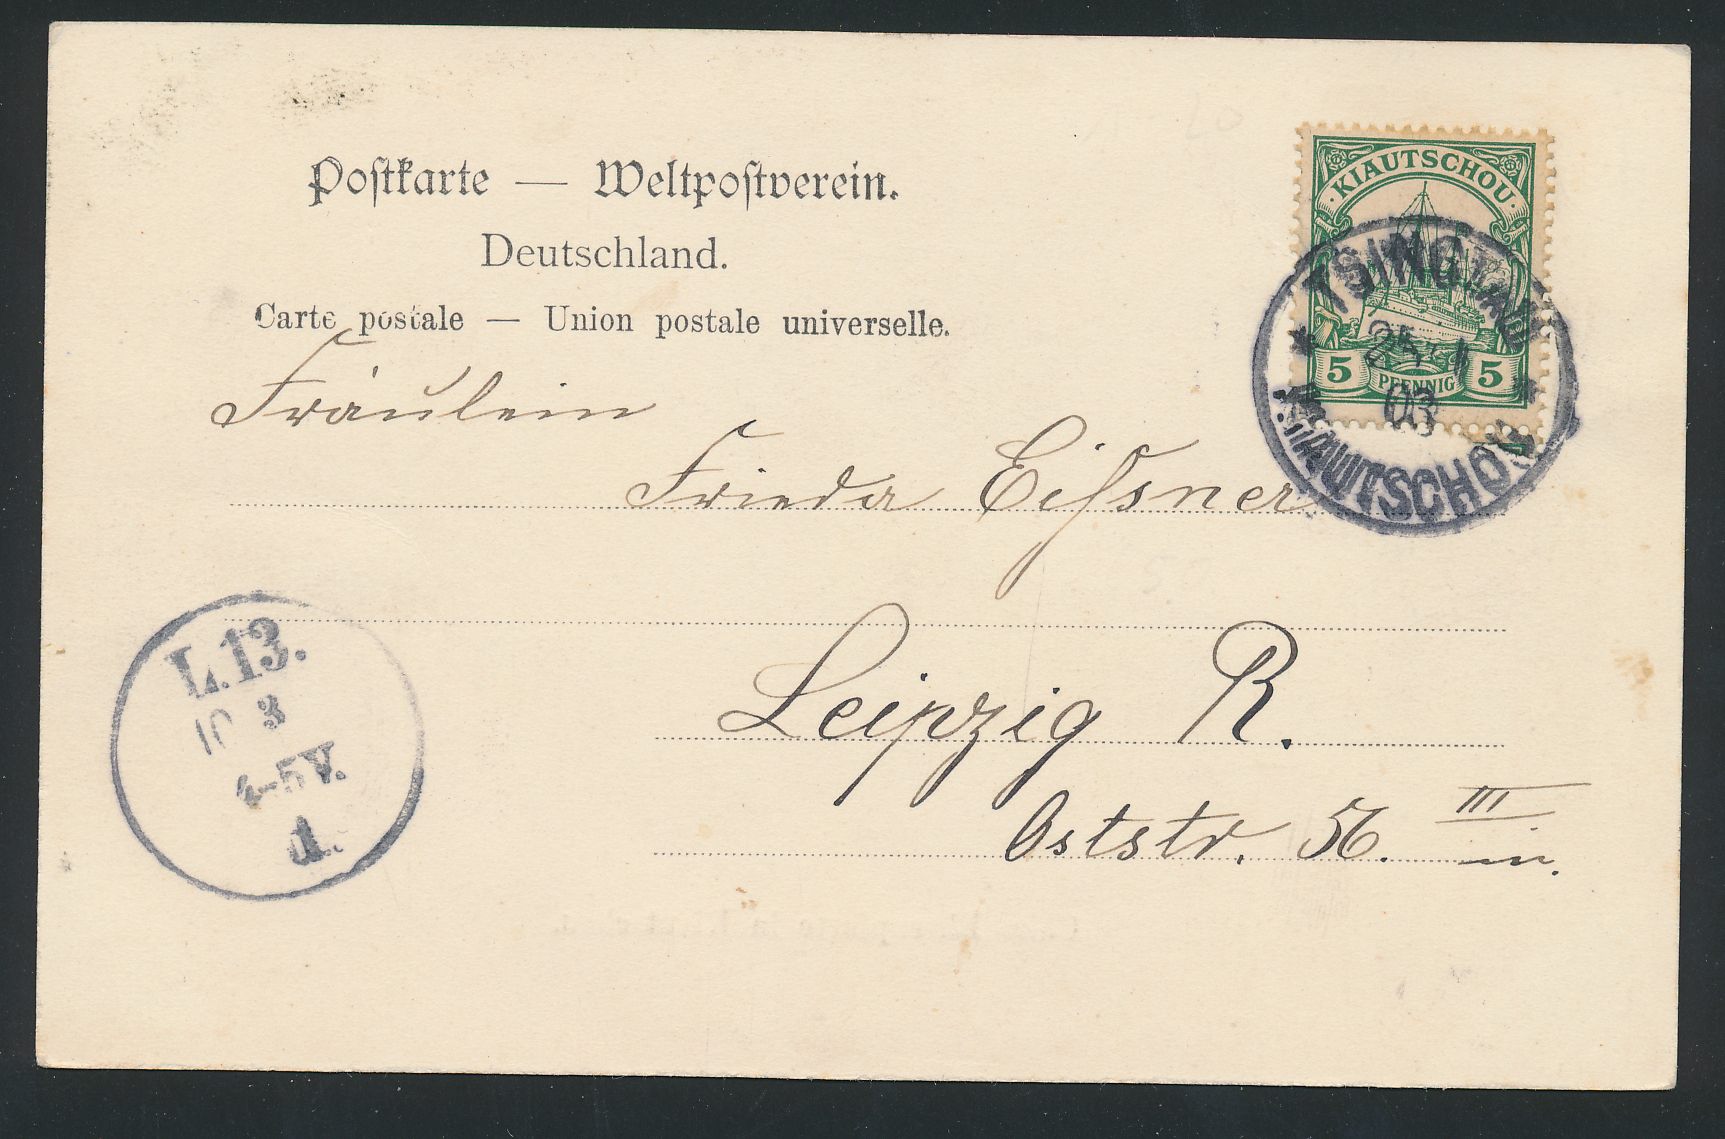 Postkarte — Weltpostverein.
Deutschland.
Carte postale — Union postale universelle.
KIAUTSCHOU
5 PFENNIG 5
* TSINGTAU *
25 1
03
KIAUTSCHOU
Fräulein
Frieda Eißner
Leipzig R.
Oststr. 56. III
L.13.
10 3
4-5V.
d.